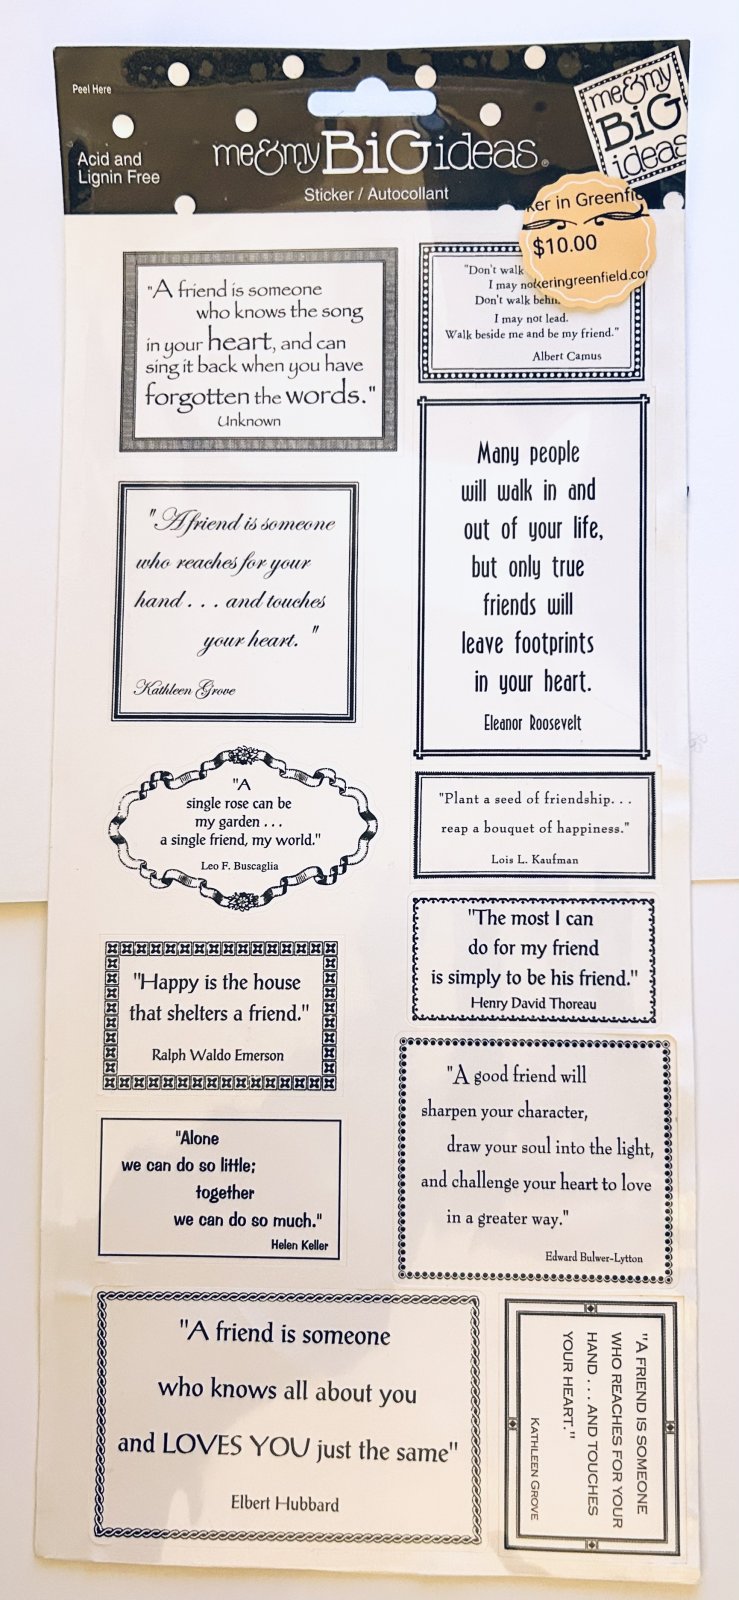 Peel Here
Acid and
Lignin Free
me&my BiG ideas®
Sticker / Autocollant
me&my
BiG
ideas
in Greenfi
$10.00
"A friend is someone
who knows the song
in your heart, and can
sing it back when you have
forgotten the words."
Unknown
"Don't walk
I may
Don't walk
I may not lead.
Walk beside me and be my friend."
Albert Camus
Many people
will walk in and
out of your life,
but only true
friends will
leave footprints
in your heart.
Eleanor Roosevelt
"A friend is someone
who reaches for your
hand . . . and touches
your heart. "
Kathleen Grove
"A
single rose can be
my garden . . .
a single friend, my world."
Leo F. Buscaglia
"Plant a seed of friendship. . .
reap a bouquet of happiness."
Lois L. Kaufman
"The most I can
do for my friend
is simply to be his friend."
Henry David Thoreau
"Happy is the house
that shelters a friend."
Ralph Waldo Emerson
"A good friend will
sharpen your character,
draw your soul into the light,
and challenge your heart to love
in a greater way."
Edward Bulwer-Lytton
"Alone
we can do so little;
together
we can do so much."
Helen Keller
"A friend is someone
who knows all about you
and LOVES YOU just the same"
Elbert Hubbard
"A FRIEND IS SOMEONE
WHO REACHES FOR YOUR
HAND . . . AND TOUCHES
YOUR HEART."
KATHLEEN GROVE